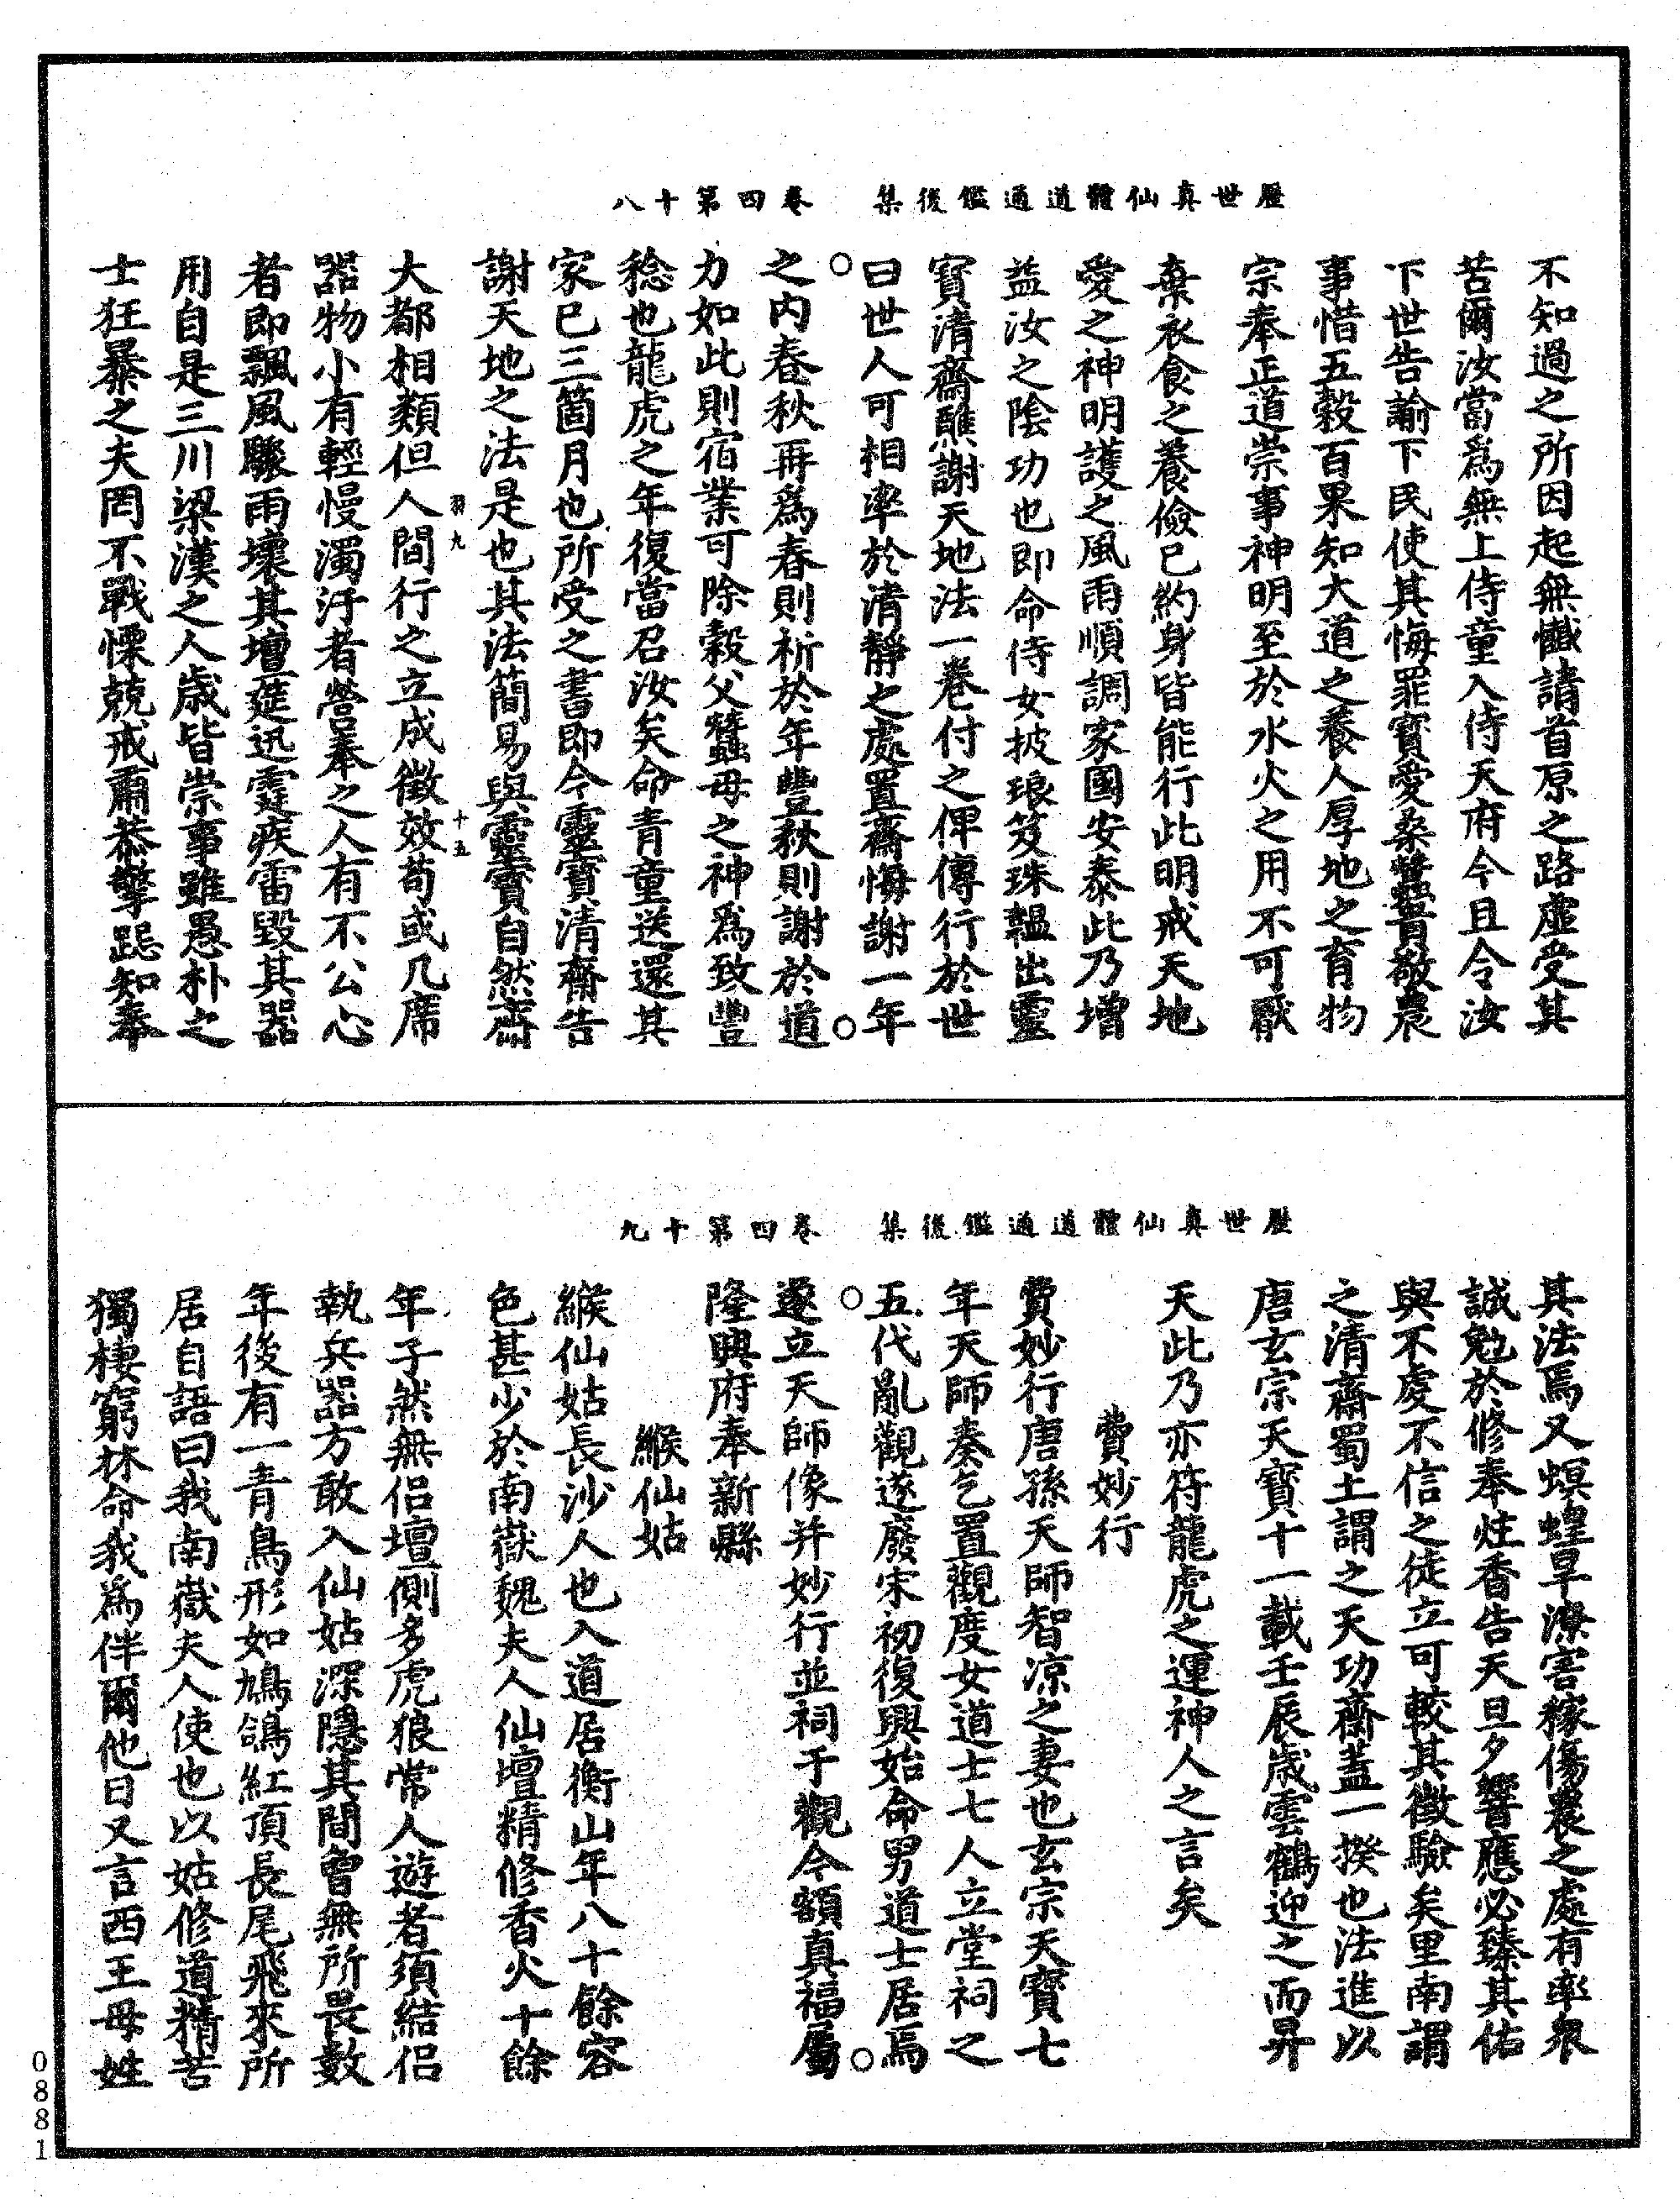 歷世真仙體道通鑑後集　卷四第十八
不知過之所因起無懺請首原之路虛受其
苦爾汝當爲無上侍童入侍天府今且令汝
下世告諭下民使其悔罪寶愛桑蠶貴敬農
事惜五穀百果知大道之養人厚地之育物
宗奉正道崇事神明至於水火之用不可厭
棄衣食之養儉已約身皆能行此明戒天地
愛之神明護之風雨順調家國安泰此乃增
益汝之陰功也即命侍女披琅笈珠韞出靈
寶清齋醮謝天地法一卷付之俾傳行於世
曰世人可相率於清靜之處置齋悔謝一年
之內春秋再爲春則祈於年豐秋則謝於道
力如此則宿業可除穀父蠶母之神爲致豐
稔也龍虎之年復當召汝矣命青童送還其
家已三箇月也所受之書即今靈寶清齋告
謝天地之法是也其法簡易與靈寶自然齋
羽九　十五
大都相類但人間行之立成徵效苟或几席
器物小有輕慢濁汙者營奉之人有不公心
者即飄風驟雨壞其壇筵迅霆疾雷毀其器
用自是三川梁漢之人歲皆崇事雖愚朴之
士狂暴之夫罔不戰慄兢戒肅恭擎跽知奉
歷世真仙體道通鑑後集　卷四第十九
其法焉又螟蝗旱潦害稼傷農之處有率衆
誠勉於修奉炷香告天旦夕響應必臻其佑
與不虔不信之徒立可較其徵驗矣里南謂
之清齋蜀土謂之天功齋蓋一揆也法進以
唐玄宗天寶十一載壬辰歲雲鶴迎之而昇
天此乃亦符龍虎之運神人之言矣
費妙行
費妙行唐孫天師智凉之妻也玄宗天寶七
年天師奏乞置觀度女道士七人立堂祠之
五代亂觀遂廢宋初復興始命男道士居焉
遂立天師像并妙行並祠于觀今額真福屬
隆興府奉新縣
緱仙姑
緱仙姑長沙人也入道居衡山年八十餘容
色甚少於南嶽魏夫人仙壇精修香火十餘
年孑然無侶壇側多虎狼常人遊者須結侶
執兵器方敢入仙姑深隱其間曾無所畏數
年後有一青鳥形如鳩鴿紅頂長尾飛來所
居自語曰我南嶽夫人使也以姑修道精苦
獨棲窮林命我爲伴爾他日又言西王母姓
0881